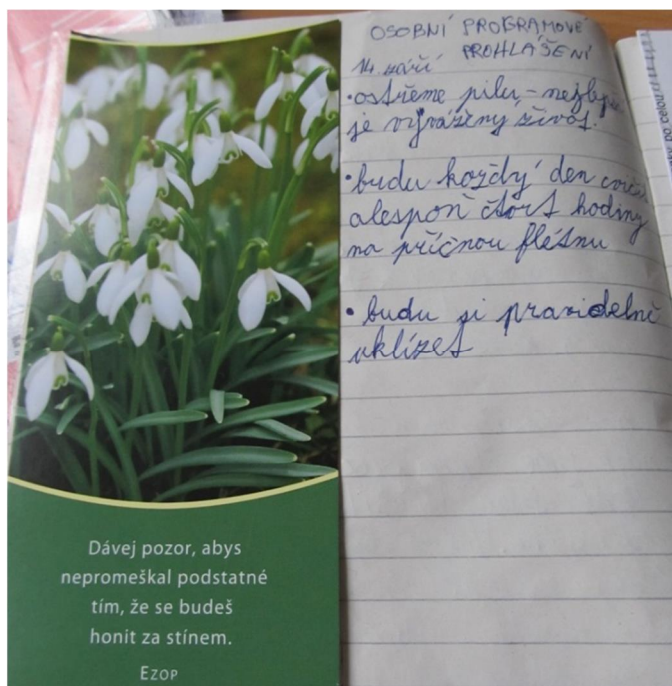 Dávej pozor, abys
nepromeškal podstatné
tím, že se budeš
honit za stínem.
EZOP
OSOBNÍ PROGRAMOVÉ
PROHLÁŠENÍ
14. září
• ostřeme pilu - nejlepší
je vyvážený život.
• budu každý den cvičit
alespoň čtvrt hodiny
na příčnou flétnu
• budu si pravidelně
uklízet